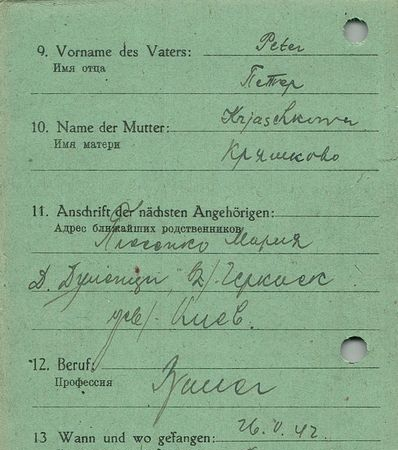 9. Vorname des Vaters: Peter
Имя отца Петер
10. Name der Mutter: Krjaschkowa
Имя матери Кряшково
11. Anschrift der nächsten Angehörigen:
Адрес ближайших родственников
Мария
Д. г/. Черкаск
Киев.
12. Beruf:
Профессия
13 Wann und wo gefangen: 26.V.42.